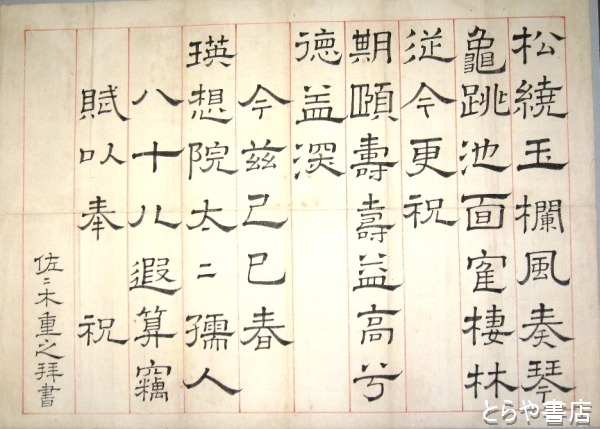 松繞玉欄風奏琴
龜跳池面寉棲林
従今更祝
期頤壽壽益高兮
徳益深
今兹己巳春
瑛想院太〻孺人
八十八遐算竊
賦以奉祝
佐〻木重之拜書
とらや書店